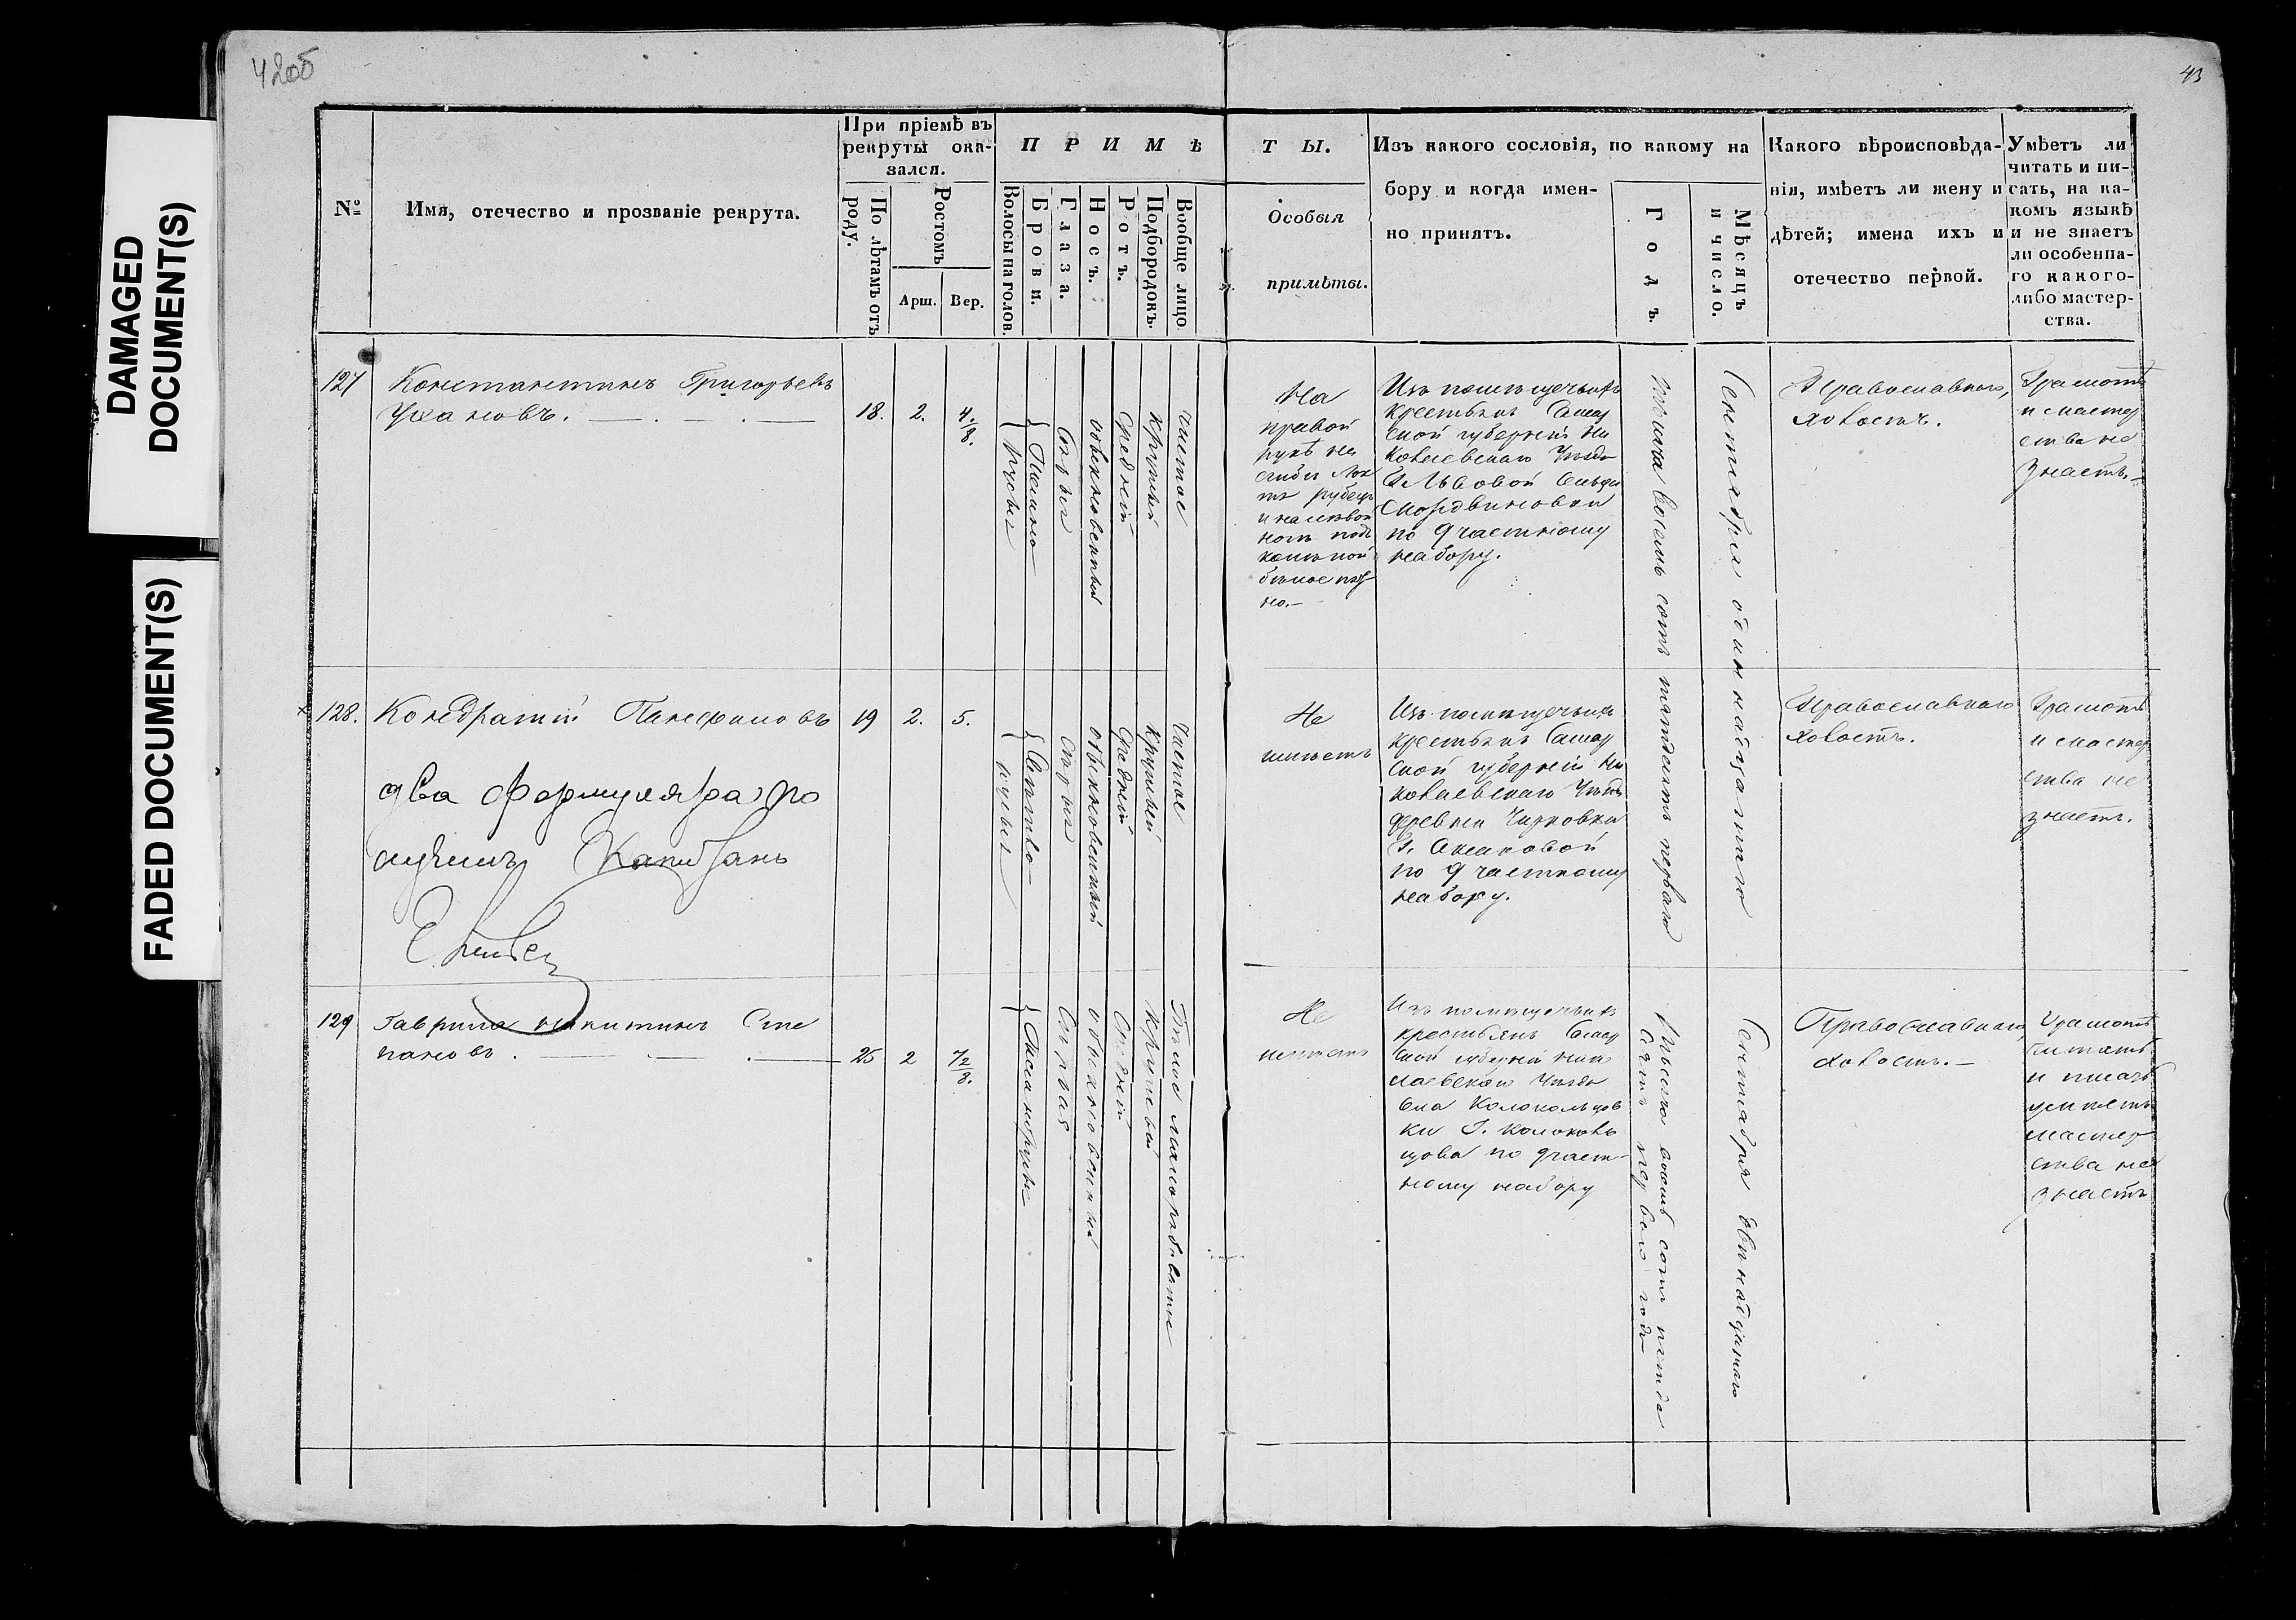 42об
43
DAMAGED
DOCUMENT(S)
FADED DOCUMENT(S)
№
Имя, отечество и прозваніе рекрута.
При пріемѣ въ
рекруты ока-
зался.
По лѣтамъ отъ
роду.
Ростомъ
Арш.
Вер.
ПРИМѢ
Волосы на голов.
Брови.
Глаза.
Носъ.
Ротъ.
Подбородокъ.
Вообще лицо
ТЫ.
Особыя
примѣты.
Изъ какого сословія, по какому на
бору и когда имен-
но принятъ.
Годъ.
Мѣсяцъ
и число.
Какого вѣроисповѣда-
нія, имѣетъ ли жену и
дѣтей; имена ихъ и
отечество первой.
Умѣетъ ли
читать и пи-
сать, на ка-
комъ языкѣ
и не знаетъ
ли особенна-
го какого-
либо мастер-
ства.
127
Константинъ Григорьевъ
Ухановъ.
18.
2.
4/8.
русыя
Темно
Сѣрыя
обыкновенный
Средній
Круглый
Чистое
На
правой
рукѣ на
сгибѣ Лок
тя рубецъ
и на лѣвой
ногѣ подъ
колѣнкой
бѣлое пят
но.
Изъ помѣщичьихъ
крестьянъ Самар
ской губерніи Ни
колаевскаго Уѣзда
Г. Львовой Сельца
Мордвиновки
по 9 частному
набору.
Тысяча восемь сотъ пятдесятъ перваго
Сентября одиннадцатаго
Православнаго,
холостъ.
Грамотѣ
и мастер
ства не
знаетъ.
128.
Кондратій Панфиловъ
19
2.
5.
русыя
Свѣтло
сѣрыя
обыкновенный
Средній
Круглый
Чистое
Не
имѣетъ
Изъ помѣщичьихъ
крестьянъ Самар
ской губерніи Ни
колаевскаго Уѣзда
деревни Чирковки
Г. Аксаковой
по 9 частному
набору.
Православнаго
холостъ.
Грамотѣ
и мастер
ства не
знаетъ.
два формуляра по
лучилъ Капитанъ
129
Гаврила Никитинъ Сте
пановъ.
25
2
7 2/8.
Сѣрыя
обыкновенный
Средній
Круглый
Бѣлое
Не
имѣетъ
Изъ помѣщичьихъ
крестьянъ Самар
ской губерніи Нико
лаевскаго Уѣзда
села Колокольцов
ки Г. Колоколь
цова по 9 част
ному набору
Тысяча восемь сотъ пятьде
сятъ перваго года
Сентября двѣнадцатаго
Православнаго,
холостъ.
Грамотѣ
читать
и писать
умѣетъ
мастер
ства не
знаетъ